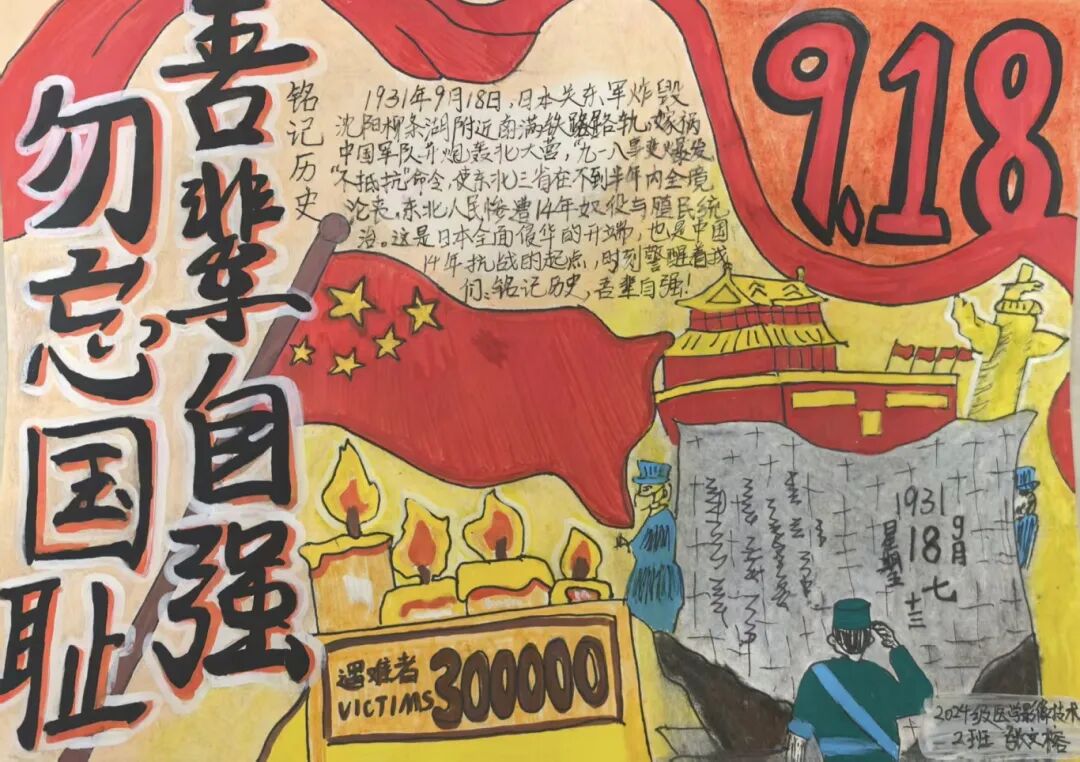 勿忘国耻
吾辈自强
铭记历史
1931年9月18日,日本关东军炸毁
沈阳柳条湖附近南满铁路路轨,嫁祸
中国军队并炮轰北大营,"九一八事变爆发,
"不抵抗"命令,使东北三省在不到半年内全境
沦丧,东北人民惨遭14年奴役与殖民统
治。这是日本全面侵华的开端,也是中国
14年抗战的起点,时刻警醒着我
们:铭记历史,吾辈自强!
9.18
1931
9月
18
七
十三
遇难者
VICTIMS
300000
2024级医学影像技术
2班 张文榕